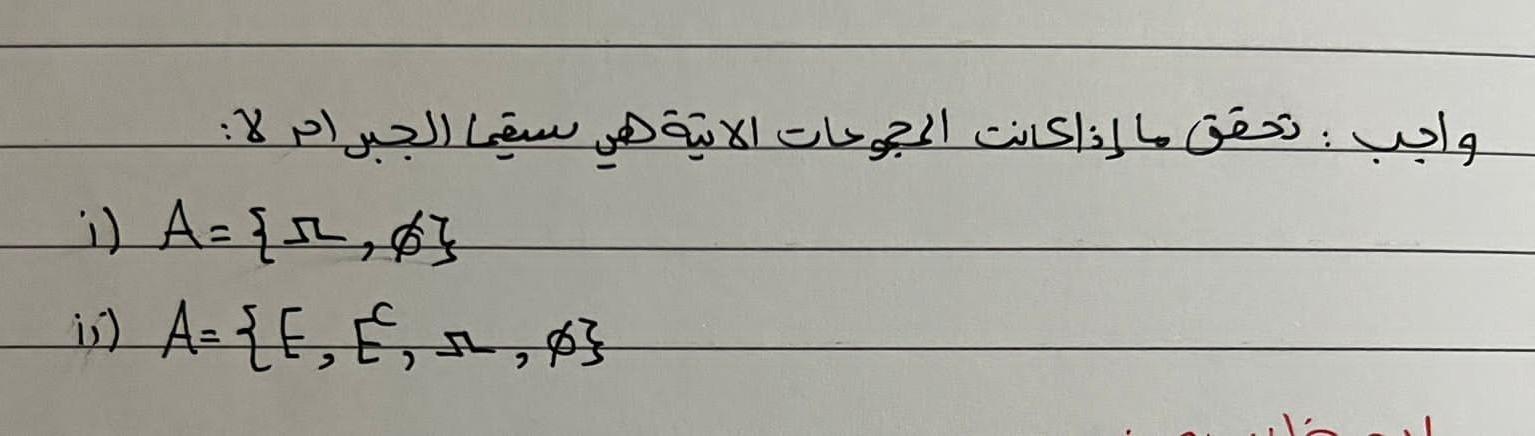 واجب : تحقق ما إذا كانت المجموعات الاتية هي سيقما الجبر ام لا:
i) A = {Ω, ϕ}
ii) A = {E, Eᶜ, Ω, ϕ}